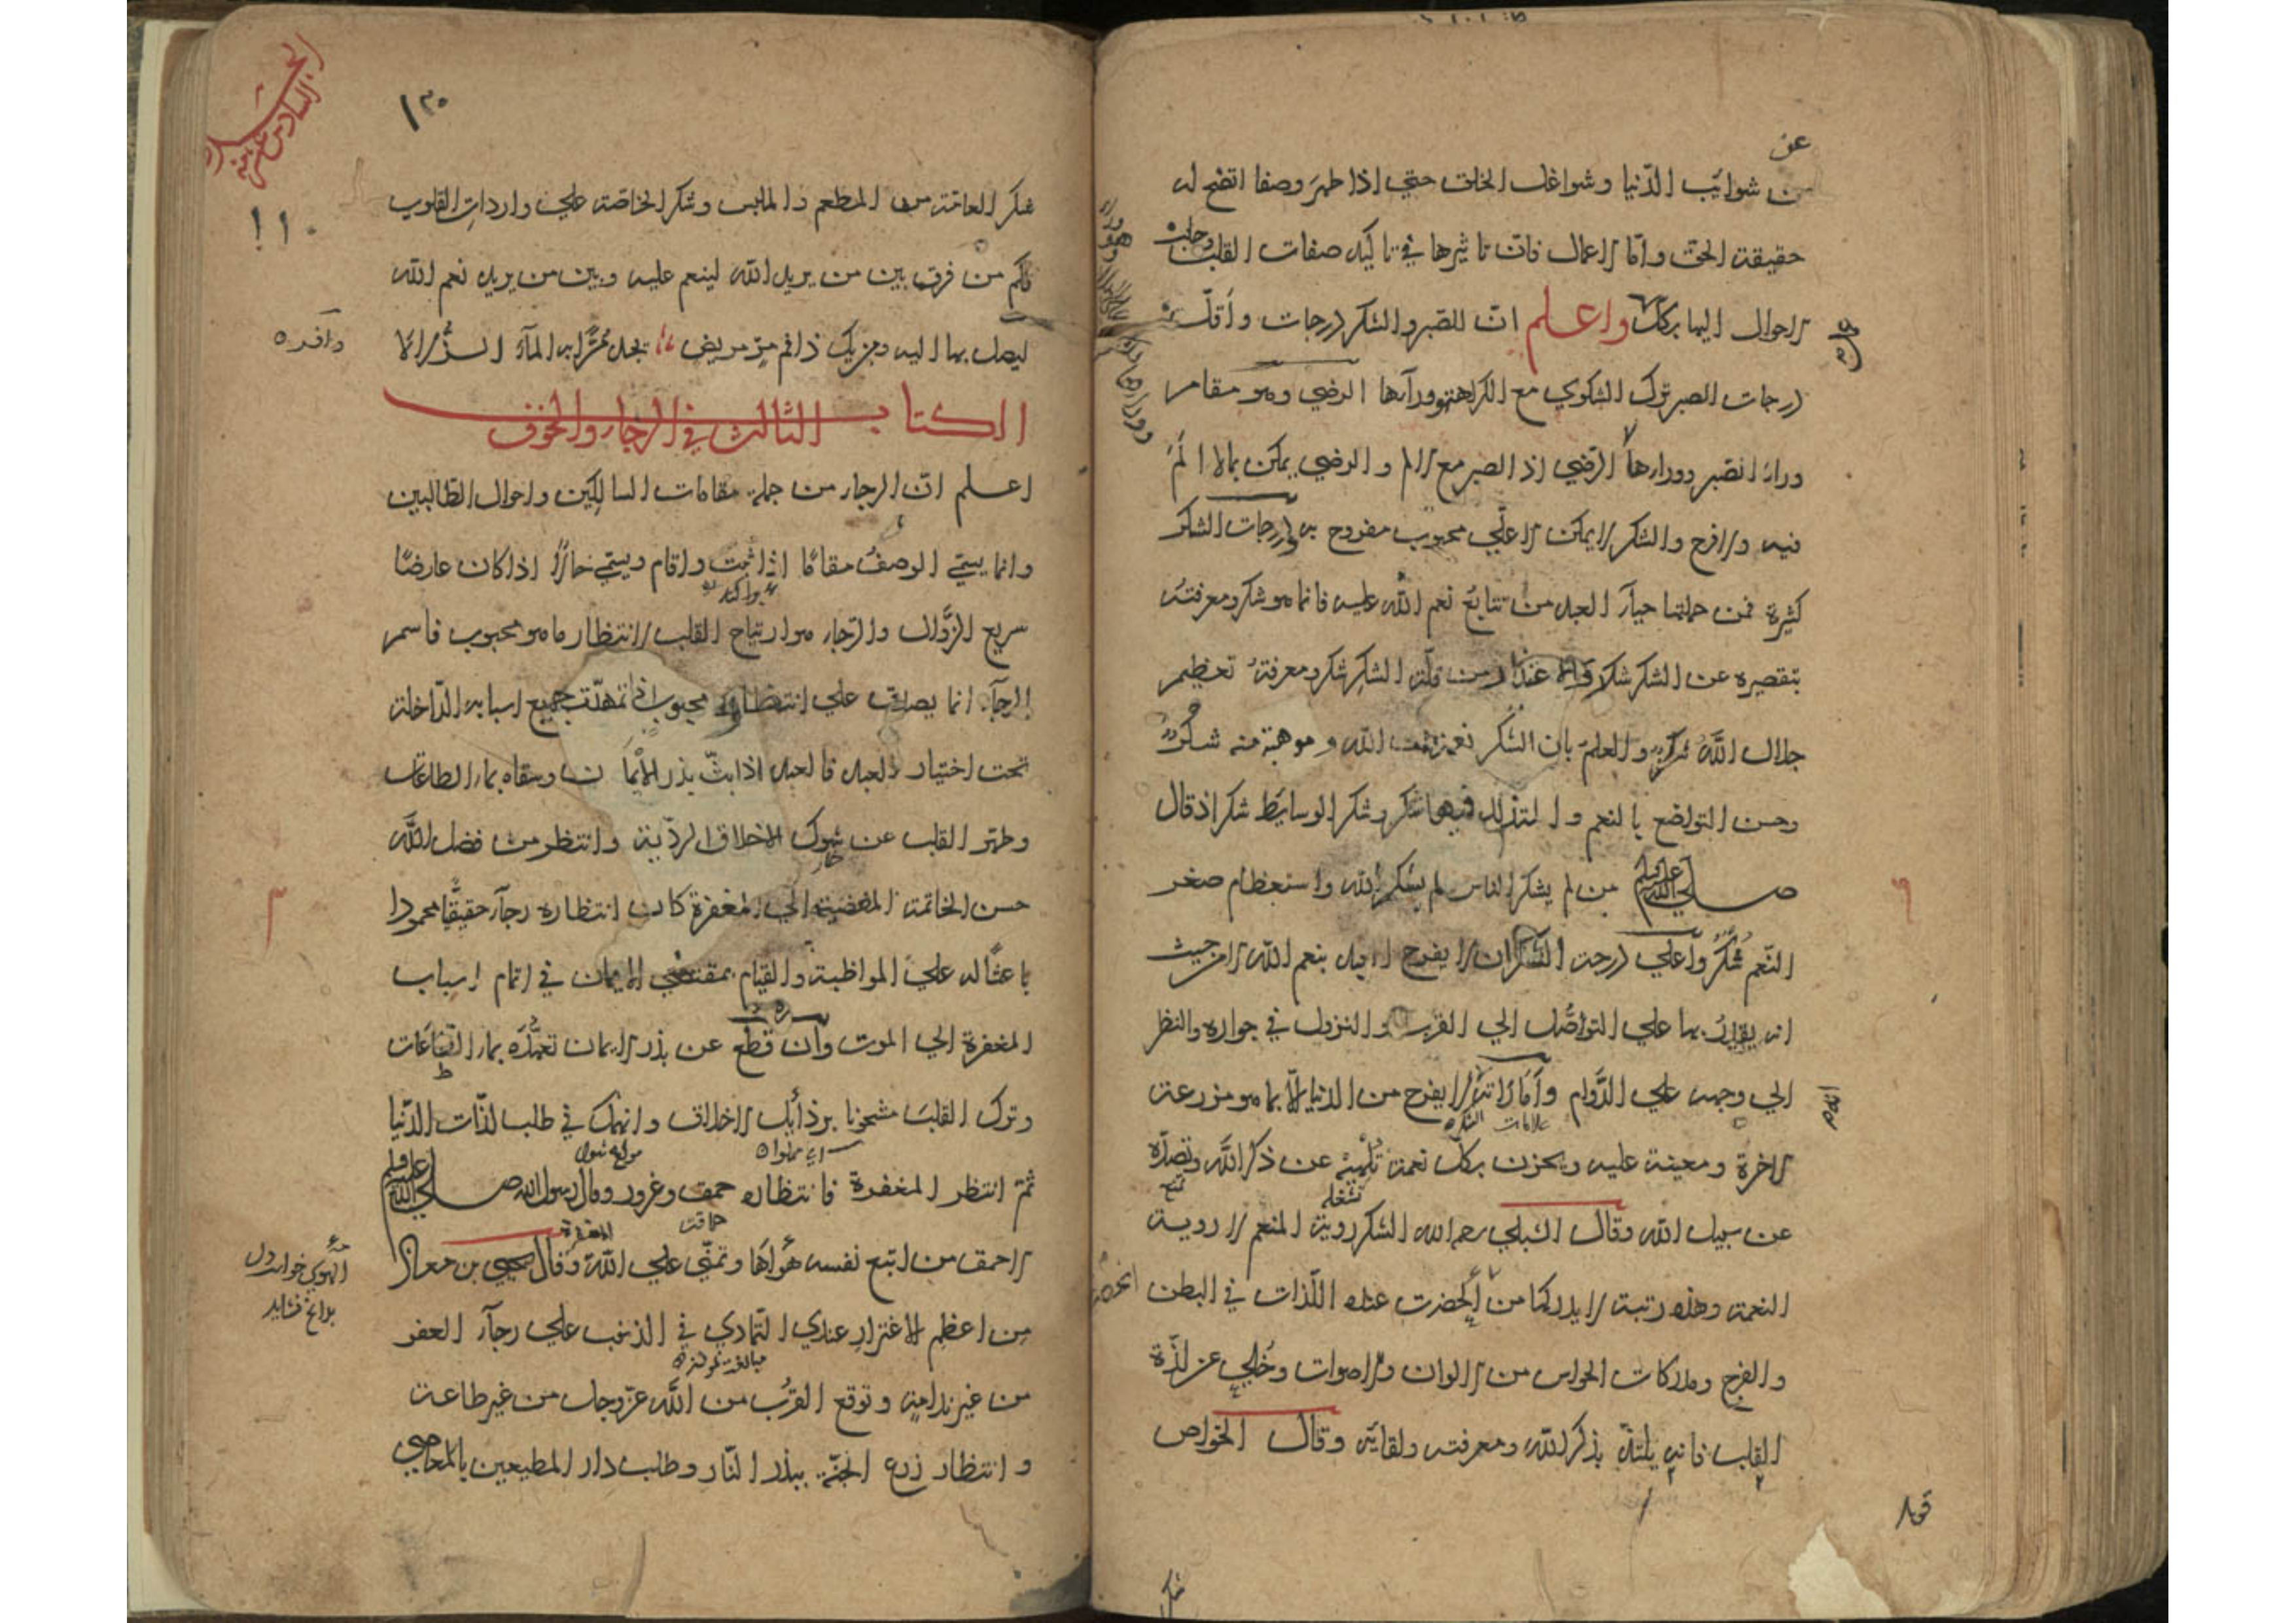 عن
من شوائب الدّنيا وشواغل الخلق حتي اذا طهر وصفا اتضح له
حقيقة الحق وامّا الاعمال فانّ تاثيرها في تاكيد صفات القلب وجلب
الاحوال اليها بركك واعلم انّ للصّبر والشكر درجات واقلّ
درجات الصبر ترك الشكوي مع الكراهة وورآءها الرضي وهو مقام
وراء الصّبر ووراءها الرّضي اذ الصبر مع الالم والرضي يمكن بما لا الم
فيه ولا فرح والشكر لا يمكن الا علي محبوب مفروح به ودرجات الشكر
كثيرة فمن جملتها حيآء العبد من تتابع نعم الله عليه فانما هو شكر ومعرفته
بتقصيره عن الشكر شكر من قلّة الشكر شكر ومعرفة تعظيم
جلال الله شكر والعلم بان الشّكر نعمة من نعمت الله وموهبة منه شكر
وحسن التواضع بالنعم والتذلل فيها شكر وشكر الوسايط شكر اذ قال
صلي الله عليه وسلم من لم يشكر الناس لم يشكر الله واستعظام صغر
النّعم شكر واعلي درجة الشكر ان لا يفرح العبد بنعم الله الا من حيث
انه يقدر بها علي التوصّل الي القرب والنزول في جواره والنظر
الي وجهه علي الدّوام وأمارته ان لا يفرح من الدنيا الّا بما هو مزرعة
علامات الشكر
الاخرة ومعينة عليه ويحزن بكلّ نعمة تلهيه عن ذكر الله وتصدّه
تشغله
عن سبيل الله وقال الشبلي رحمه الله الشكر روية المنعم لا روية
النعمة وهذه رتبة لا يدركها من انحصرت عنده اللّذات في البطن
والفرج ومدركات الحواس من الالوان والاصوات وخلي عن لذّة
القلب فانه يلتذّ بذكر الله ومعرفته ولقايه وقال الخواص
شكر
١٣٠
١١٠
شكر العامّة من المطعم والملبس وشكر الخاصّة علي واردات القلوب
فكم من فرق بين من يريد الله لينعم عليه وبين من يريد نعم الله
ليصل بها اليه ومن يك ذا فم مرّ مريض يجد مرًّا به المآء الزُّلالا
الكتاب الثالث في الرجاء والخوف
اعلم انّ الرجاء من جملة مقامات السالكين واحوال الطّالبين
وانما يسمّي الوصف مقامًا اذا ثبت واقام ويسمّي حالًا اذا كان عارضًا
سريع الزّوال والرّجاء هو ارتياح القلب لانتظار ما هو محبوب فاسم
الرجآء انما يصدق علي انتظار محبوب تمهّدت جميع اسبابه الدّاخلة
تحت اختيار العبد فالعبد اذا بثّ بذر الايمان وسقاه بماء الطاعات
وطهّر القلب عن شوك الاخلاق الرديّة وانتظر من فضل الله
حسن الخاتمة المفضية الي المغفرة كان انتظاره رجآء حقيقيًّا محمودا
باعثًا له علي المواظبة والقيام بمقتضي الايمان في اتمام اسباب
المغفرة الي الموت وان قطع عن بذر الايمان تعهّده بماء الطّاعات
وترك القلب مشحونا برذايل الاخلاق وانهمك في طلب لذّات الدّنيا
ثمّ انتظر المغفرة فانتظاره حمق وغرور وقال رسول الله صلي الله عليه وسلم
حماقت
الاحمق من اتبع نفسه هواها وتمنّي علي الله وقال يحيي بن معاذ
من اعظم الاغترار عندي التمادي في الذنب علي رجآء العفو
من غير ندامة وتوقع القرب من الله عزّ وجلّ من غير طاعة
وانتظار زرع الجنّة ببذر النّار وطلب دار المطيعين بالمعاصي